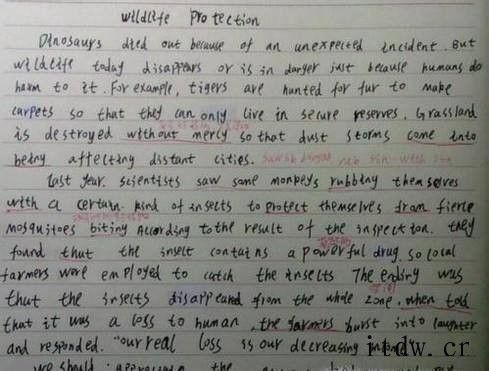 Wildlife Protection
Dinosaurs died out because of an unexpected incident. But
wildlife today disappears or is in danger just because humans do
harm to it. For example, tigers are hunted for fur to make
carpets so that they can only live in secure reserves. Grassland
is destroyed without mercy so that dust storms come into
being affecting distant cities.
Last year. scientists saw some monkeys rubbing themselves
with a certain kind of insects to protect themselves from fierce
mosquitoes biting According to the result of the inspection. they
found that the insect contains a powerful drug. so local
farmers were employed to catch the insects The ending was
that the insects disappeared from the whole zone. when told
that it was a loss to human, the farmers burst into laughter
and responded. "our real loss is our decreasing
we should the
itdw.cn